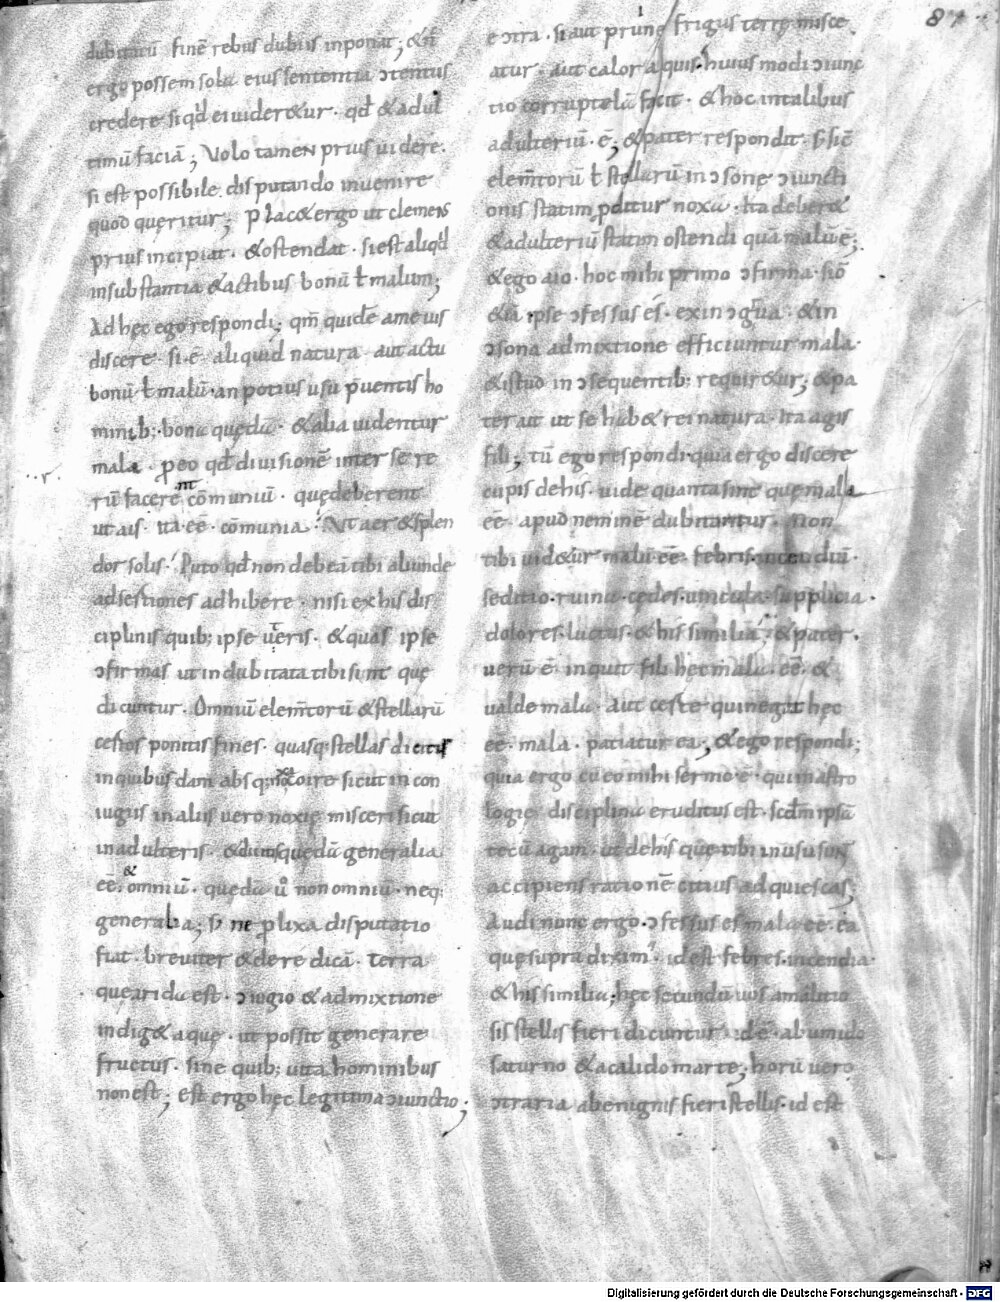 87
dubitatū finē rebus dubiis inponat; &si
ergo possem sola eius sententia ↄtentus
credere siqd ei uider&ur · qd & adul
timū faciā; Volo tamen prius uidere ·
si est possibile disputando inuenire
quod quęritur; Plac& ergo ut clemens
prius incipiat · &ostendat · si est aliqd
insubstantia &actibus bonū ł malum;
Ad hęc ego respondi; qm̄ quidē ame uis
discere · si · ē · aliquid natura · aut actu
bonū · ł malū · an potius usu p̄uentis ho
minib; · bona quędā · &alia uidentur
mala · ꝓeo qd diuisionē inter se re
rū facerent cōmuniū · quę deberent
ut ais · ita · eē · cōmunia · Vt aer &splen
dor solis · Puto qd non debeā tibi aliunde
adsertiones adhibere · nisi exhis dis
ciplinis quib; ipse · &quas ipse
ↄfirmas ut indubitata tibi sint quę
dicuntur · Omniū elem̄torū &stellarū
certos ponitis fines · quasq; stellas dicitis
inquibusdam absq; noxa coire sicut in con
iugiis inaliis uero noxię misceri sicut
inadulteris · quędā generalia
eē · & omniū · quędā ů non omniū · neq;
generalia; s; ne ꝓlixa disputatio
fiat · breuiter &dere dicā · terra
quearida est · ↄiugio &admixtione
indig& aquę · ut possit generare
fructus · sine quib; uita hominibus
non est; est ergo hęc legitima ↄiunctio;
eↄtra · si aut prune frigus terrę misce
atur · aut calor aquis · huius modi ↄiunc
tio corruptelā facit · & hoc intalibus
adulteriū · ē; &pater respondit · s; sic̄
elem̄torū ł stellarū inↄsone ↄiuncti
onis statim ꝓditur noxa · Ita deber&
&adulteriū statim ostendi quā malū · ē;
&ego aio · hoc mihi primo ↄfirma · si
ipse ↄfessus es · exinↄgrua · &in
ↄsona admixtione efficiuntur mala ·
&istud inↄsequentib; requir&ur; &pa
ter ait ut se hab& rei natura · Ita agis
fili; tū ego respondi · quia ergo discere
cupis dehis · uide quanta sint quę mala
eē · apud neminē dubitantur · Non
tibi uid&ur malū · eē · febris · incendiū ·
seditio · ruina · cędes · uincula · supplicia ·
dolores · luctus · &his similia; &pater ·
uerū · ē · inquit fili hęc mala · eē · &
ualde mala · Aut certe qui negat hęc
eē · mala · patiatur ea; &ego respondi;
quia ergo cū eo mihi sermo · ē · qui inastro
logię disciplina eruditus est · scdm̄ ipsā
tecū agam · ut dehis quę tibi inusu sunt
accipiens rationē citius adquiescas;
Audi nunc ergo · ↄfessus es mala · eē · ea
quę supra diximꝰ · id est febres · incendia ·
&his similia; hęc secundū uos amalitio
sis stellis fieri dicuntur · id · ē · ab umido
saturno &acalido marte; horū uero
ↄtraria abenignis fieri stellis · id est
Digitalisierung gefördert durch die Deutsche Forschungsgemeinschaft - DFG